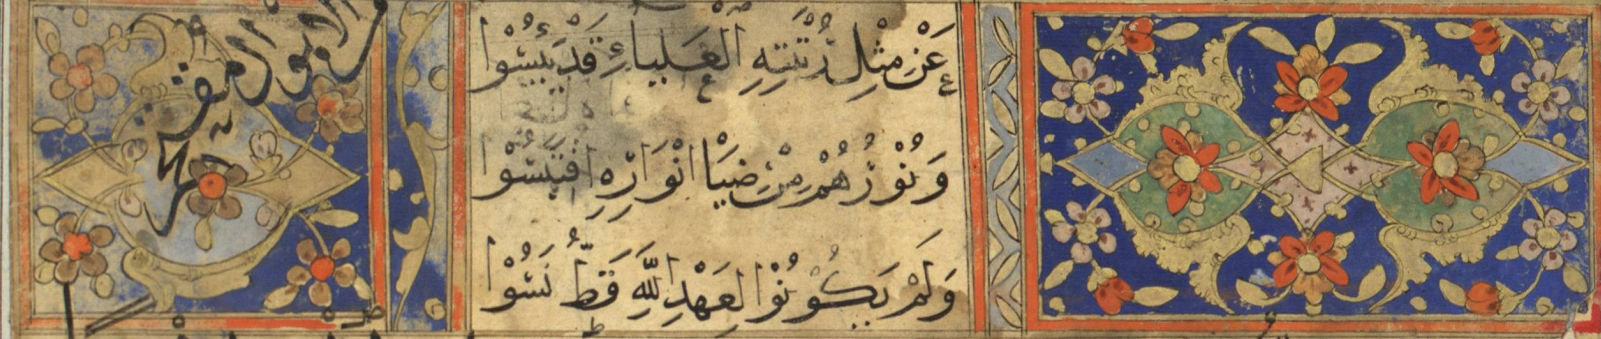 عَنْ مِثْلِ رُتْبَتِهِ الْعَلْيَاءِ قَدْ يَئِسُوا
وَنُوْرُهُمْ مِنْ ضِيَا انْوَارِهِ اقْتَبَسُوا
وَلَمْ يَكُوْنُوْا لِعَهْدِ اللَّهِ قَطُّ نَسُوْا